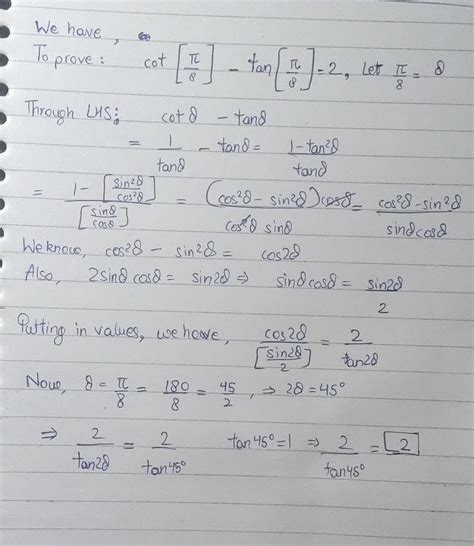 We have,
To prove : cot [π/8] - tan [π/8] = 2, Let π/8 = θ
Through LHS: cotθ - tanθ
= 1/tanθ - tanθ = (1-tan²θ)/tanθ
= (1 - [sin²θ/cos²θ])/[sinθ/cosθ] = (cos²θ - sin²θ)cosθ/(cos²θ sinθ) = (cos²θ - sin²θ)/(sinθcosθ)
We know, cos²θ - sin²θ = cos2θ
Also, 2sinθcosθ = sin2θ ⇒ sinθcosθ = sin2θ/2
Putting in values, we have, cos2θ/[sin2θ/2] = 2/tan2θ
Now, θ = π/8 = 180/8 = 45/2, ⇒ 2θ = 45°
⇒ 2/tan2θ = 2/tan45° tan45° = 1 ⇒ 2/tan45° = 2